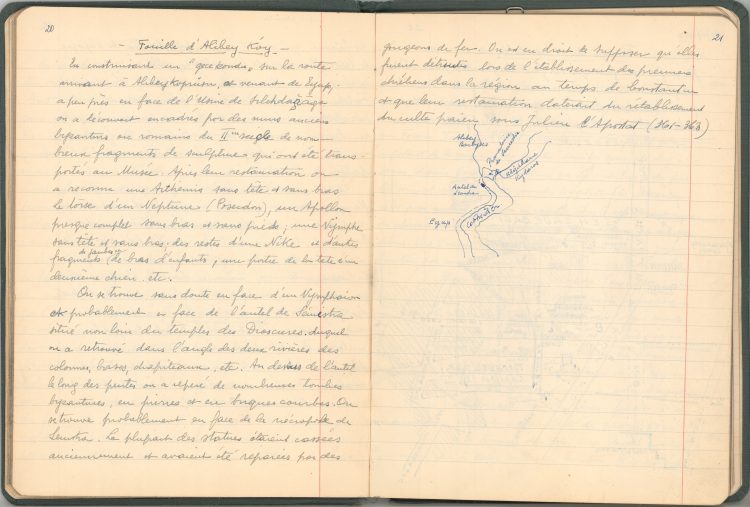 20
- Fouille d'Alibey Köy -
En construisant un "gecekondu" sur la route
menant à Alibeykoyüsu, et venant de Eyup,
a peu près en face de l'Usine de Silahdarağa
on a découvert encadrés par des murs anciens
byzantins ou romains du II me siècle de nom-
breux fragments de sculpture qui ont été trans-
portés au Musée. Après leur restauration on
a reconnu une Arthemis sans tête et sans bras
le torse d'un Neptune (Poseidon), un Apollon
presque complet sans bras et sans pieds; une Nymphe
sans tête et sans bras; des restes d'une Nikè et d'autres
fragments de jambes, de bras d'enfants, une partie de la tête d'un
deuxième chien. etc.
On se trouve sans doute en face d'un Nymphaion
et probablement en face de l'autel de Semestra
situé non loin du temples des Dioscures. duquel
on a retrouvé dans l'angle des deux rivières des
colonnes, bases, chapiteaux, etc. Au dessus de l'autel
le long des pentes on a repéré de nombreuses tombes
byzantines, en pierres et en briques courbes. On
se trouve probablement en face de la nécropole de
Semestra. La plupart des statues étaient cassées
anciennement et avaient été réparées par des
21
goujeons de fer. On est en droit de supposer qu'elles
furent détruites lors de l'établissement des premiers
chrétiens dans la région au temps de Constantin
et que leur restauration daterait du rétablissement
du culte païen sous Julien l'Apostat (361-363)
Alibey
Barbyses
Autel de
Semestra
Kâgithane
Cydaris
Eyup